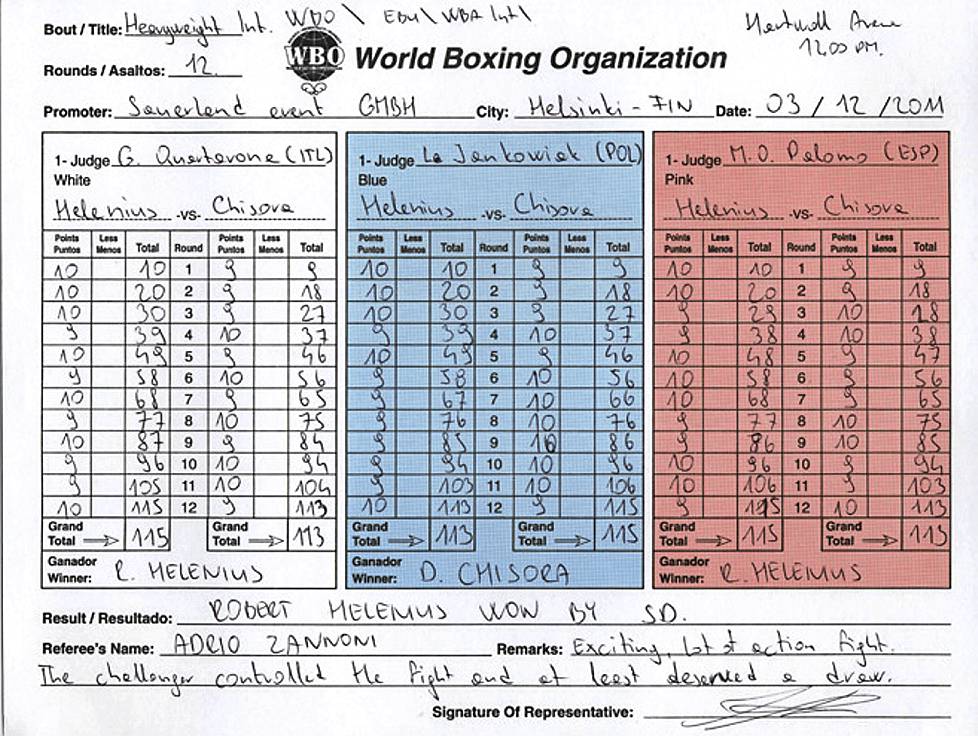 Bout / Title: Heavyweight Int. WBO \ EBU \ WBA Int \
Hartwall Arena
12.00 PM.
Rounds / Asaltos: 12.
WBO World Boxing Organization
Promoter: Sauerland event GMBH City: Helsinki - FIN Date: 03 / 12 / 2011
1- Judge G. Quartarone (ITL) 1- Judge La Jankowiak (POL) 1- Judge M.O. Palomo (ESP)
White Blue Pink
Helenius -vs- Chisora Helenius -vs- Chisora Helenius -vs- Chisora
Points Less Total Round Points Less Total Points Less Total Round Points Less Total Points Less Total Round Points Less Total
Puntos Menos Puntos Menos Puntos Menos Puntos Menos Puntos Menos Puntos Menos
10 10 1 9 9 10 10 1 9 9 10 10 1 9 9
10 20 2 9 18 10 20 2 9 18 10 20 2 9 18
10 30 3 9 27 10 30 3 9 27 9 29 3 10 28
9 39 4 10 37 9 39 4 10 37 9 38 4 10 38
10 49 5 9 46 10 49 5 9 46 10 48 5 9 47
9 58 6 10 56 9 58 6 10 56 10 58 6 9 56
10 68 7 9 65 9 67 7 10 66 10 68 7 9 65
9 77 8 10 75 9 76 8 10 76 9 77 8 10 75
10 87 9 9 84 9 85 9 10 86 9 86 9 10 85
9 96 10 10 94 9 94 10 10 96 10 96 10 9 94
9 105 11 10 104 9 103 11 10 106 10 106 11 9 103
10 115 12 9 113 10 113 12 9 115 9 115 12 10 113
Grand Total 115 Grand Total 113 Grand Total 113 Grand Total 115 Grand Total 115 Grand Total 113
Ganador Ganador Ganador
Winner: R. HELENIUS Winner: D. CHISORA Winner: R. HELENIUS
Result / Resultado: ROBERT HELENIUS WON BY SD.
Referee's Name: ADRIO ZANNONI Remarks: Exciting, lot of action fight.
The challenger controlled the fight and at least deserved a draw.
Signature Of Representative: